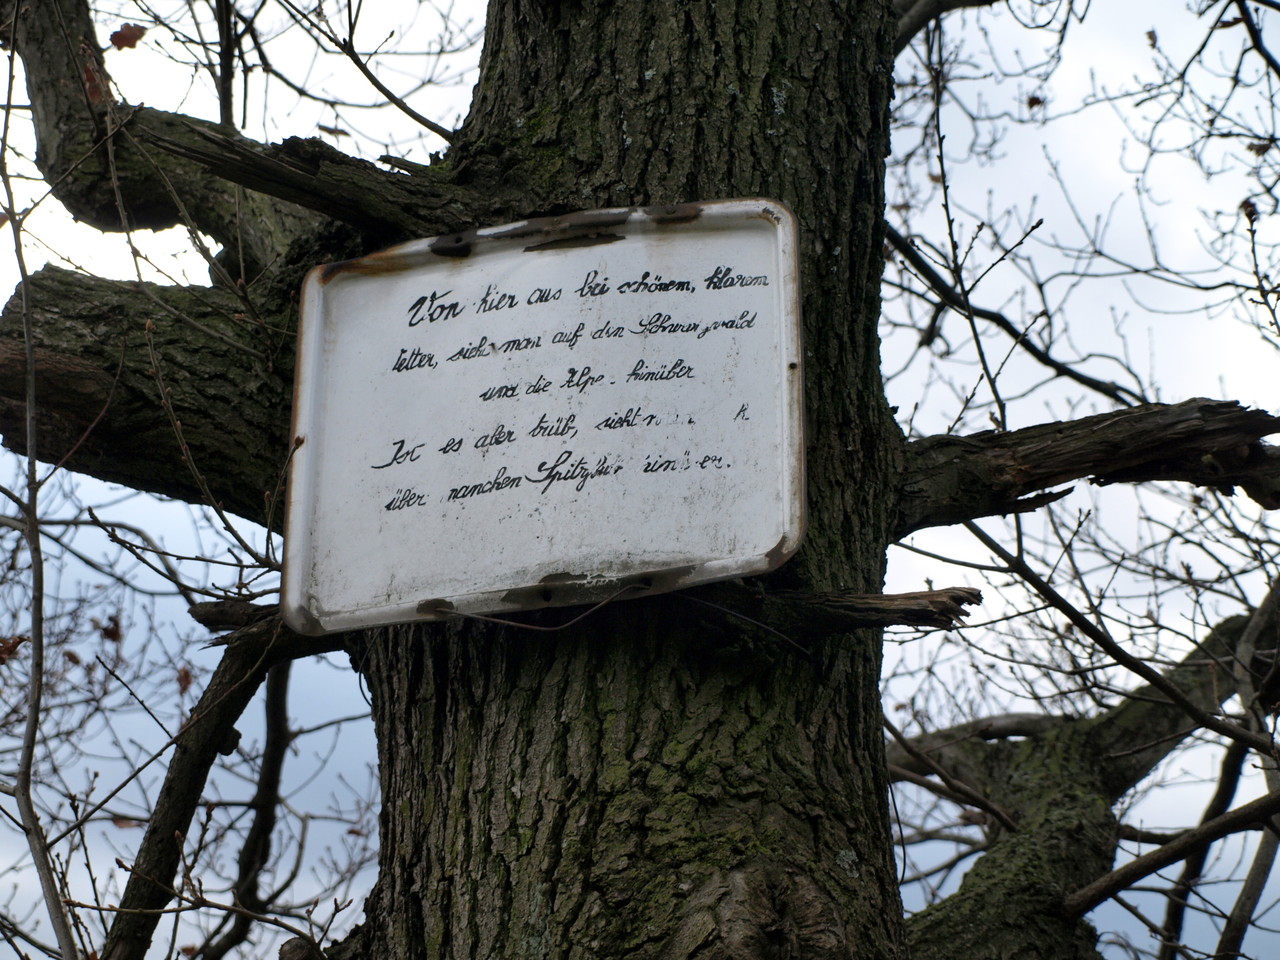 Von hier aus bei schönem, klarem
etter, sieht man auf den Schwarzwald
und die Alpe hinüber
Ist es aber trüb, sieht
über manchen